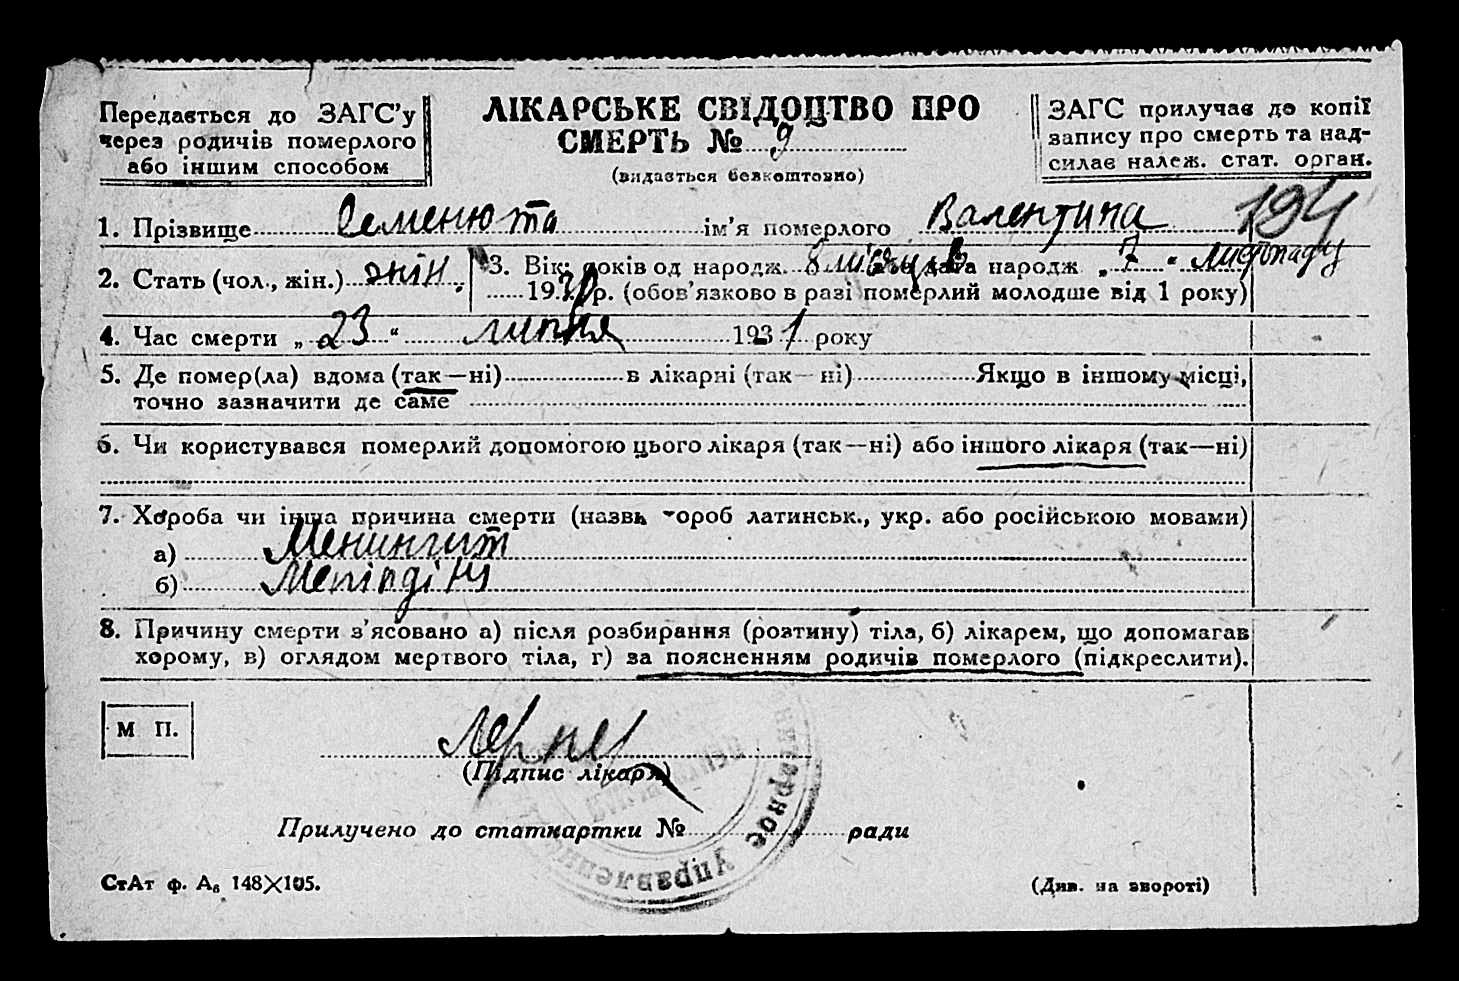 Передається до ЗАГС'у
через родичів померлого
або іншим способом
ЛІКАРСЬКЕ СВІДОЦТВО ПРО
СМЕРТЬ № 9
(видається безкоштовно)
ЗАГС прилучає до копії
запису про смерть та над-
силає належ. стат. орган.
194
1. Прізвище Семенюта ім'я померлого Валентина
2. Стать (чол., жін.) жін.
3. Вік: років од народж. 8 місяців дата народж „ 7 “ листопаду
1930 р. (обов'язково в разі померлий молодше від 1 року)
4. Час смерти „ 23 “ липня 1931 року
5. Де помер(ла) вдома (так—ні) в лікарні (так—ні) Якщо в іншому місці,
точно зазначити де саме
6. Чи користувався померлий допомогою цього лікаря (так—ні) або іншого лікаря (так—ні)
7. Хороба чи інша причина смерти (назви хороб латинськ., укр. або російською мовами)
а) Менингит
б)
8. Причину смерти з'ясовано а) після розбирання (розтину) тіла, б) лікарем, що допомагав
хорому, в) оглядом мертвого тіла, г) за поясненням родичів померлого (підкреслити).
М П.
(Підпис лікаря)
Прилучено до статкартки № ради
Управлени
СтАт ф. А₆ 148×105.
(Див. на звороті)